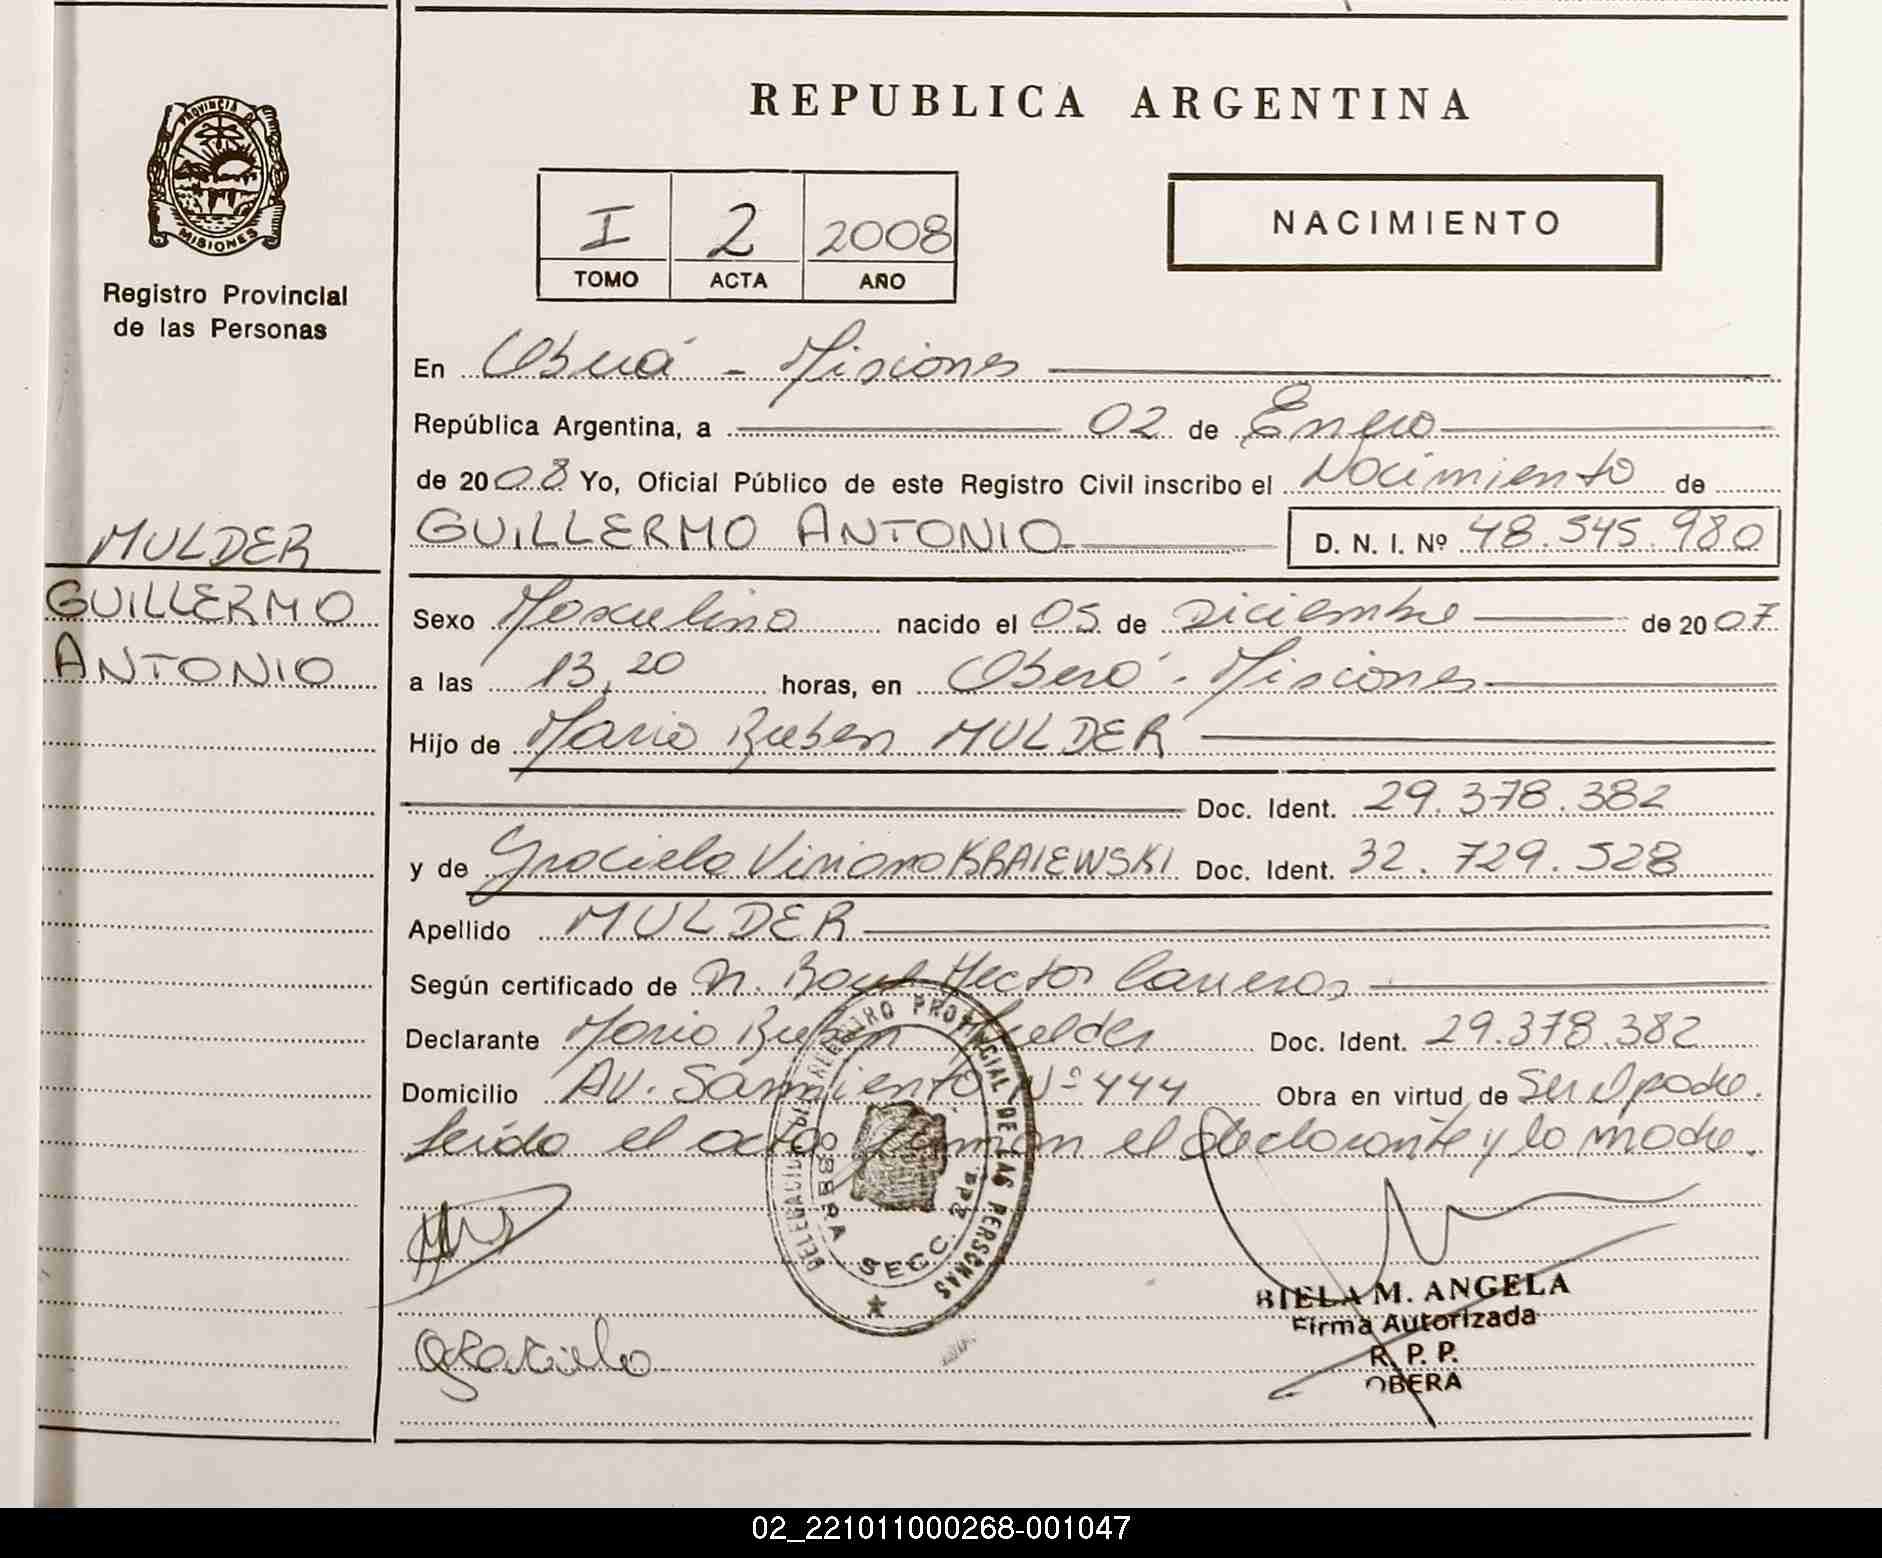 REPUBLICA ARGENTINA
PROVINCIA DE MISIONES
Registro Provincial
de las Personas
I 2 2008
TOMO ACTA AÑO
NACIMIENTO
En Oberá - Misiones
República Argentina, a 02 de Enero
de 2008 Yo, Oficial Público de este Registro Civil inscribo el Nacimiento de
GUILLERMO ANTONIO D. N. I. Nº 48.545.980
MULDER
GUILLERMO
ANTONIO
Sexo Masculino nacido el 05 de Diciembre de 2007
a las 13,20 horas, en Oberá - Misiones
Hijo de Mario Ruben MULDER
Doc. Ident. 29.378.382
y de Graciela Viviana KRAIEWSKI Doc. Ident. 32.729.528
Apellido MULDER
Según certificado de Dr. Raul Hector Carreras
Declarante Mario Ruben Mulder Doc. Ident. 29.378.382
Domicilio Av. Sarmiento Nº 444 Obra en virtud de Ser el padre.
Leida el acta firman el declarante y la madre.
DELEGACION DEL REGISTRO PROVINCIAL DE LAS PERSONAS
OBERA SECC. 2da.
Graciela
BIELA M. ANGELA
Firma Autorizada
R. P. P.
OBERA
02_221011000268-001047